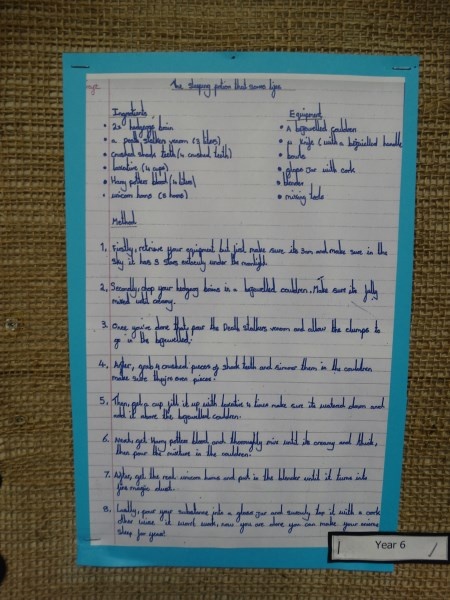 The sleeping potion that saves lifes
Ingredients
Equipment
• 25 hedgehogs brain
• A bejewelled cauldren
• a death stalkers venom (3 liters)
• a knife (with a bejewelled handle
• crushed shark teeth (4 crushed teeth)
• bowls
• (4 cups)
• glass jar with cork
• Harry potters blood (4 liters)
• blender
• unicorn horns (8 horns)
• mixing tools
Method
1. Firstly, retrieve your equipment but just make sure its 3am and make sure in the
sky it has 3 stars entirely under the moonlight.
2. Secondly, chop your hedgehog brains in a bejewelled cauldren. Make sure its fully
mixed with
3. Once you've done that, pour the Death stalkers venom and allow the clumps to
go in the bejewelled.
4. After, grab 4 crushed pieces of shark teeth and simmer them in the cauldren
make sure they're even pieces.
5. Then, get a cup fill it up with 4 times make sure its watered down and
add it above the bejewelled cauldren.
6. Next, get Harry potters blood and thoroughly mix until its creamy and thick,
then pour the mixture in the cauldren.
7. After, get the real unicorn horns and put in the blender until it turns into
fine magic dust.
8. Lastly, pour your substance into a glass jar and it with a cork
other wise it won't work, now you are done you can make your enemy
sleep for years!
Year 6